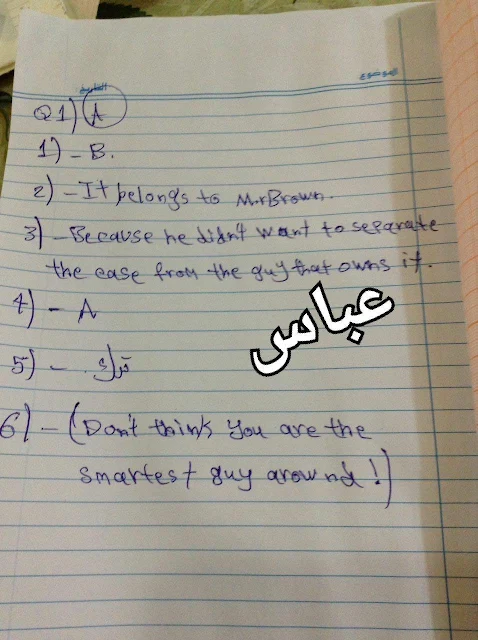 Q1) A
1) - B.
2) - It belongs to Mr Brown.
3) - Because he didn't want to separate
the case from the guy that owns it.
4) - A
عباس
5) -
6) - (Don't think you are the
smartest guy around!)